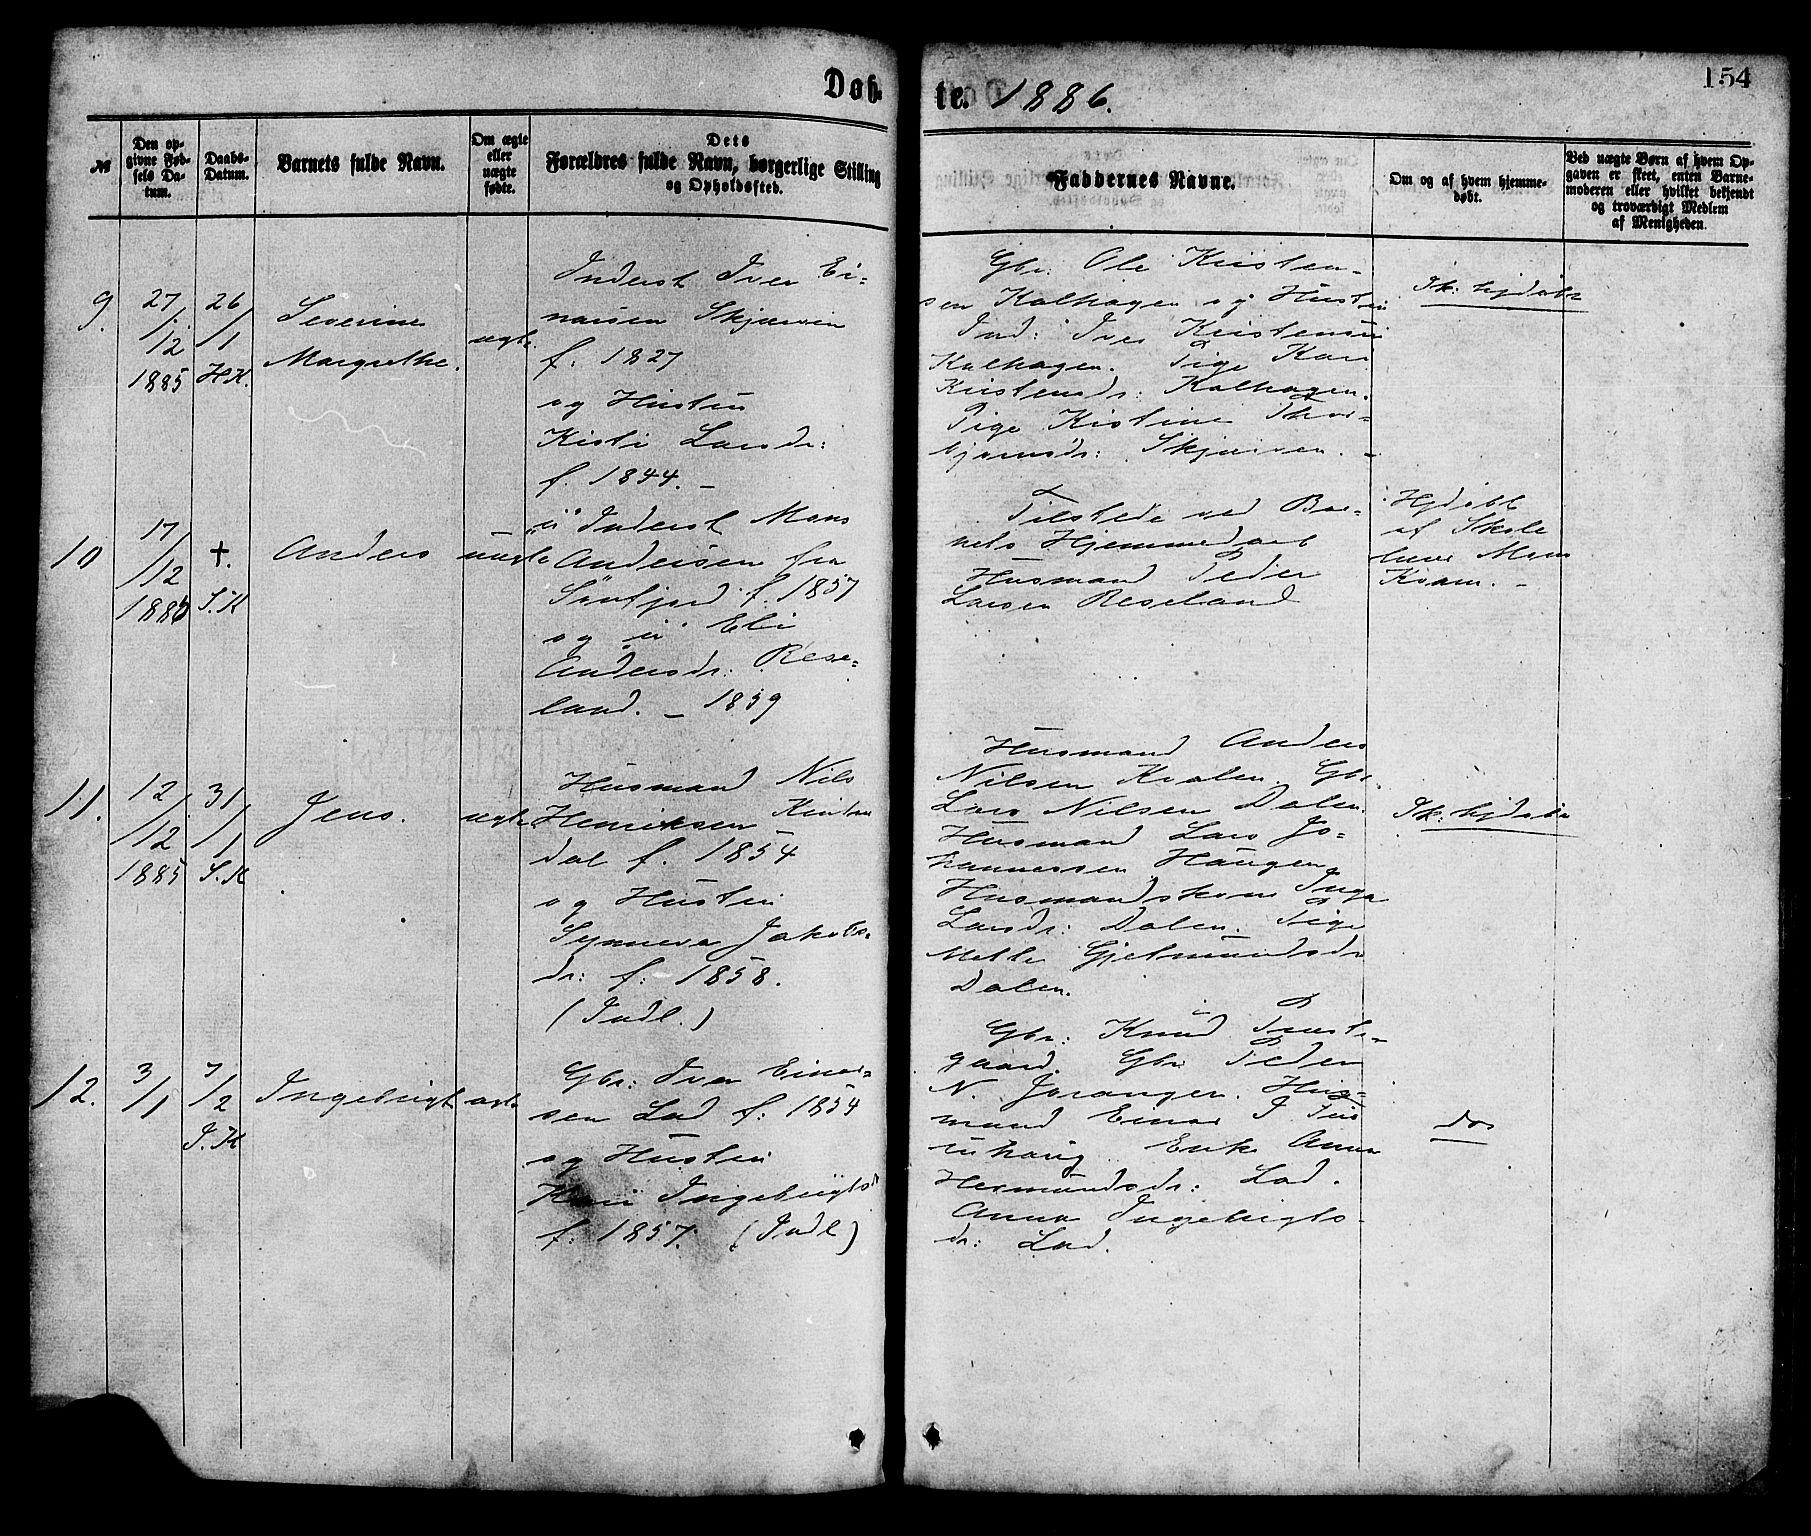 Døb-
te. 1886.
154
№
Den op-
givne Fød-
sels Da-
tum.
Daabs-
Datum.
Barnets fulde Navn.
Om ægte
eller
uægte
fødte.
Dets
Forældres fulde Navn, borgerlige Stilling
og Opholdssted.
Faddernes Navne.
Om og af hvem hjemme-
døbt.
Ved uægte Børn af hvem Op-
gaven er skeet, enten Barne-
moderen eller hvilket bekjendt
og troværdigt Medlem
af Menigheden.
9.
27/12
1885
26/1
H.K.
Severine
Margrethe.
ægte
Inderst Iver Ei-
narsen Skjærvin
f. 1827
og Hustru
Kisti Larsdr:
f. 1844. –
Gbr: Ole Kristen-
sen Kalhagen og Hustru
Ind: Iver Kristensen
Kalhagen. Pige Kari
Kristensdr: Kalhagen.
Pige Kistine Thor-
bjørnsdr: Skjærven. –
Sk: hjdøbt
10
17/12
1885
+.
S.K
Anders
uægte
"u" Inderst Mons
Andersen fra
Søndfjord f. 1857
og "u" Eli
Andersdr: Rese-
land. – 1859
Tilstede ved Bar-
nets Hjemmedaab
Husmand Peder
Larsen Reseland
Hjdøbt
af Skole
lærer Mons
Kvam. –
11.
12/12
1885
31/1
S.K
Jens.
ægte
Husmand Nils
Henriksen Kvitne
dal f. 1854
og Hustru
Synneva Jakobs-
dr: f: 1858.
(Indl.)
Husmand Anders
Nilsen Kvalen. Gbr.
Lars Nilsen Dalen.
Husmand Lars Jo-
hannessen Haugen
Husmandskone Inga
Larsdr: Dalen. Pige
Mette Gjelmundsdr
Dalen.
Sk: hjdøbt
12.
3/1
7/2
S.K
Ingebrigt
ægte
Gbr: Iver Einar-
sen Lad f: 1854
og Hustru
Kari Ingebrigtsdr
f: 1857. (Indl)
Gbr: Knud Prest-
gaard. Gbr. Peder
N. Joranger. Hus-
mand Einar I
Enke Anna
Hermundsdr: Lad.
Anna Ingebrigts-
dr: Lad.
do